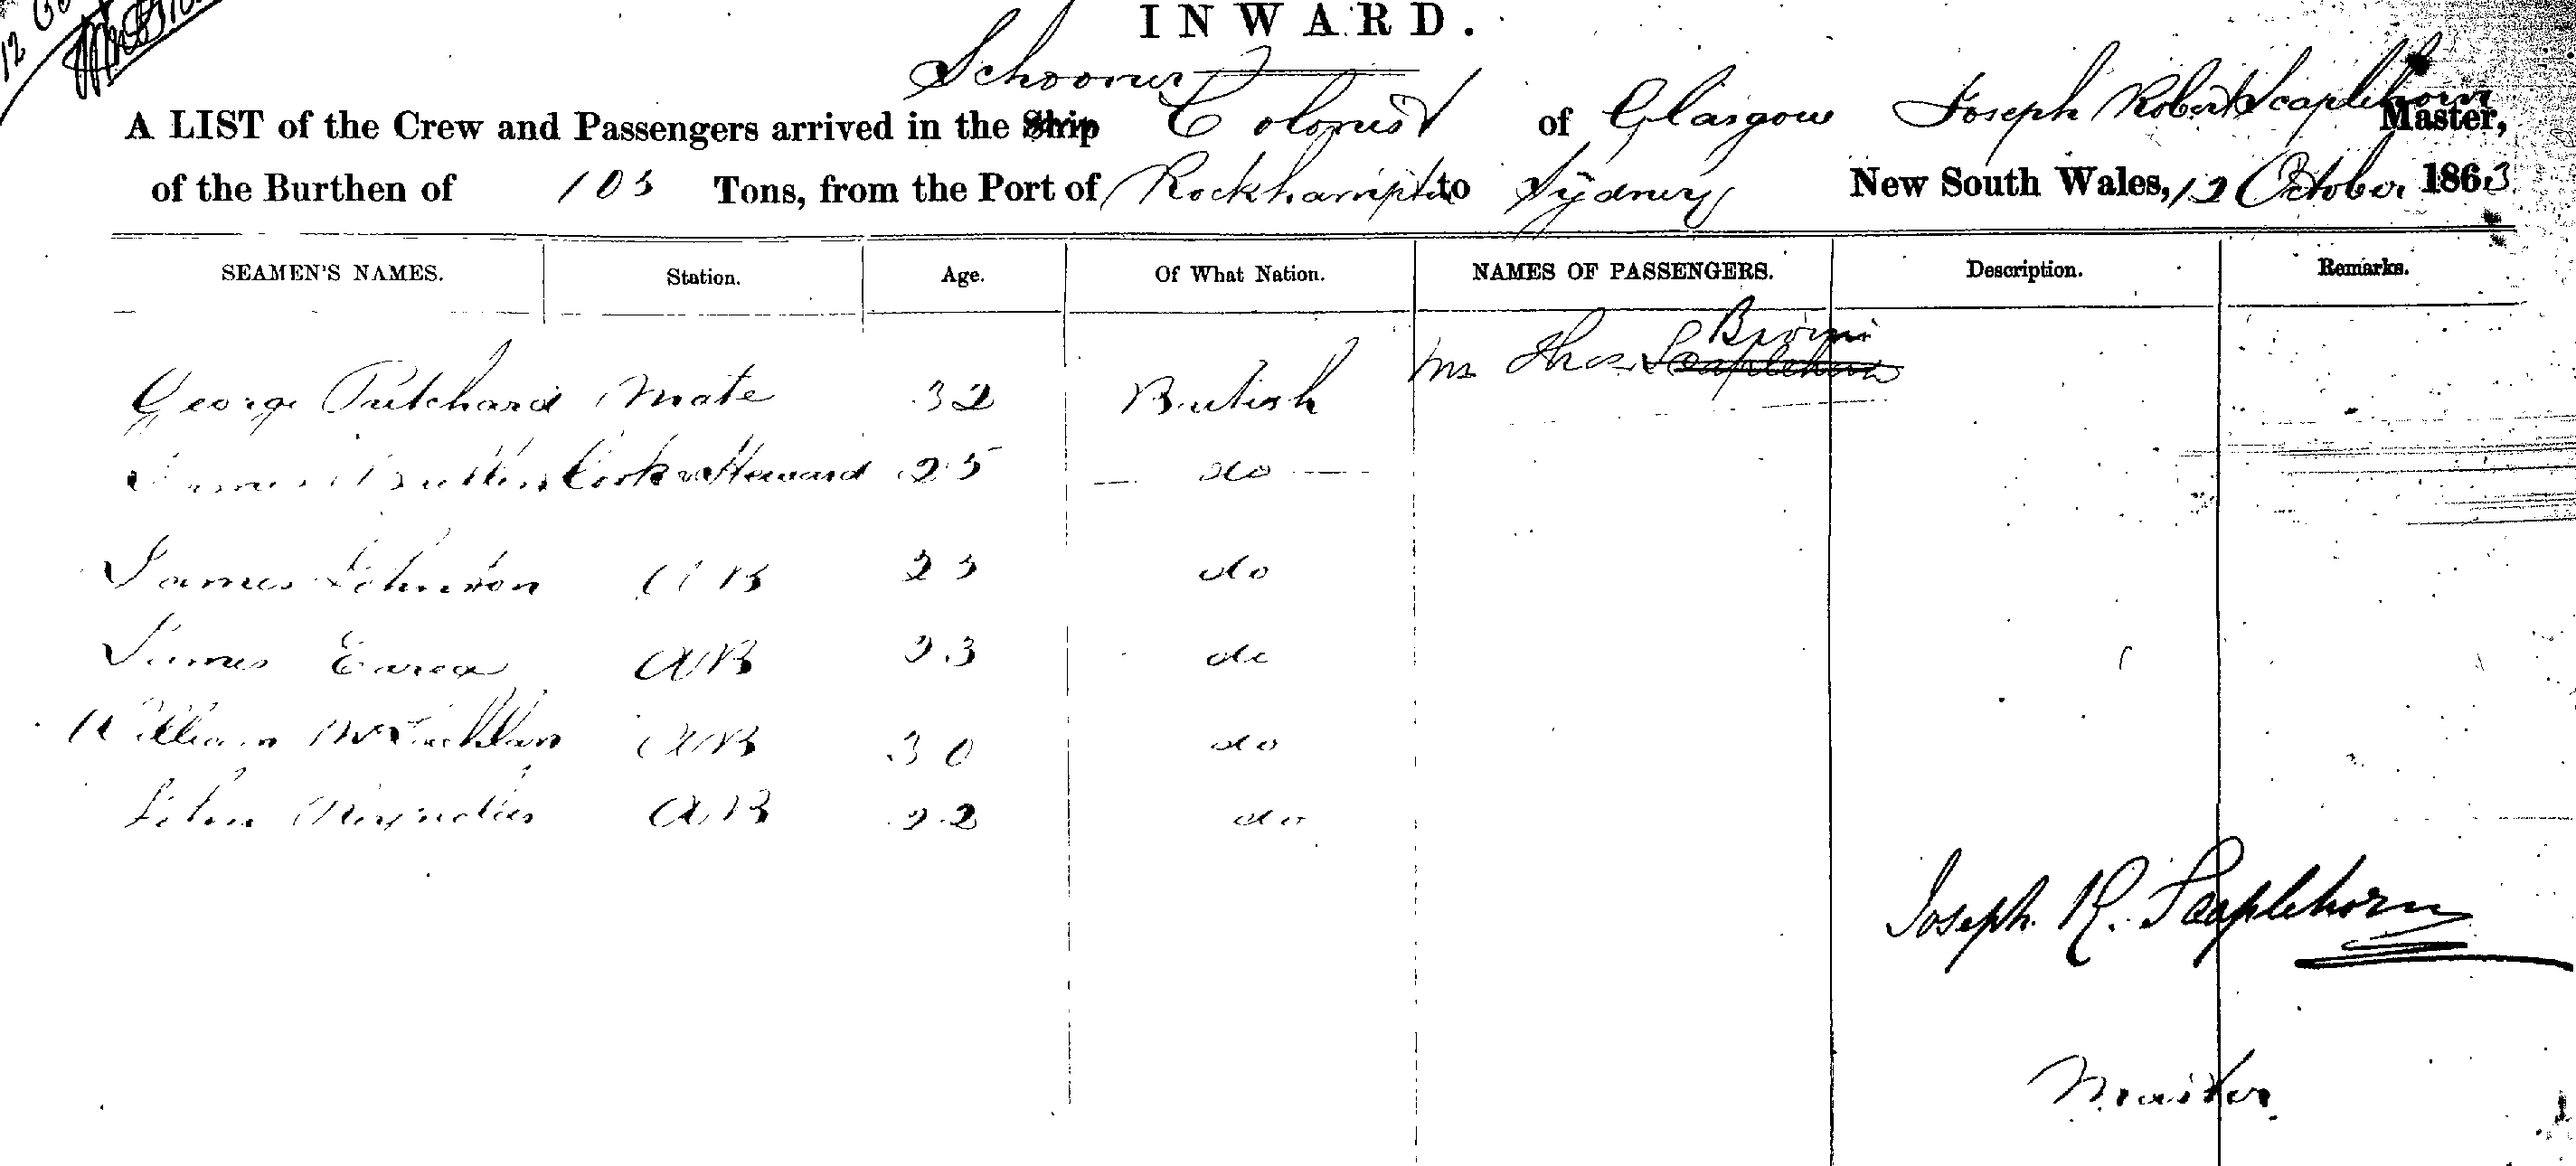 12
INWARD.
Schooner
A LIST of the Crew and Passengers arrived in the Ship Colonist of Glasgow Joseph Robert Scaplehorn Master,
of the Burthen of 103 Tons, from the Port of Rockhampton to Sydney New South Wales, 12 October 1863
SEAMEN'S NAMES. Station. Age. Of What Nation. NAMES OF PASSENGERS. Description. Remarks.
Brown
Mr Thos Scaplehorn
George Pritchard Mate 32 British
James Cook & Steward 25 do
James Johnson AB 23 do
James AB 23 do
William McLachlan AB 30 do
John AB 22 do
Joseph R. Scaplehorn
Master